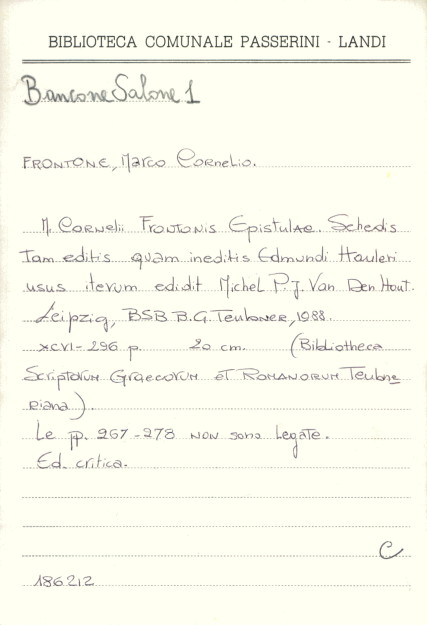 BIBLIOTECA COMUNALE PASSERINI - LANDI
Bancone Salone 1
FRONTONE, Marco Cornelio.
M. Cornelii Frontonis Epistulae. Schedis
Tam editis quam ineditis Edmundi Hauleri
usus iterum edidit Michel P.J. Van Den Hout.
Leipzig, BSB B.G. Teubner, 1988.
XCVI-296 p. 20 cm. (Bibliotheca
Scriptorum Graecorum et Romanorum Teubne
riana).
Le pp. 267-278 non sono legate.
Ed. critica.
C
186212